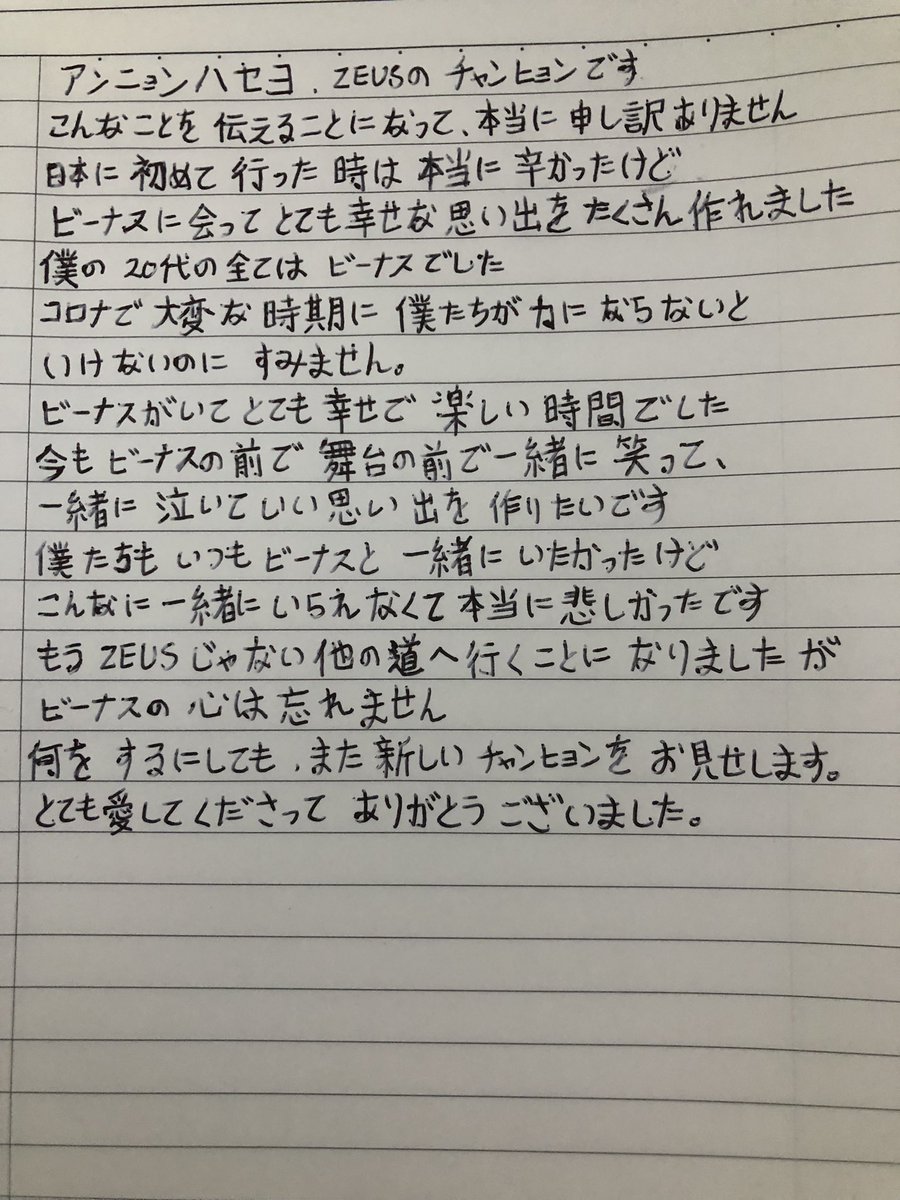 アンニョンハセヨ、ZEUSの チャンヒョンです
こんなことを 伝えることになって、本当に 申し訳ありません
日本に 初めて 行った 時は 本当に 辛かったけど
ビーナスに会って とても幸せな 思い出を たくさん 作れました
僕の 20代の全ては ビーナスでした
コロナで 大変な 時期に 僕たちが 力に ならないと
いけないのに すみません。
ビーナスがいて とても 幸せで 楽しい 時間でした
今も ビーナスの前で 舞台の前で一緒に 笑って、
一緒に 泣いて いい思い出を 作りたいです
僕たちも いつも ビーナスと 一緒に いたかったけど
こんなに 一緒に いられなくて 本当に 悲しかったです
もう ZEUSじゃない 他の道へ行くことに なりましたが
ビーナスの 心は 忘れません
何を するにしても、また 新しい チャンヒョンを お見せします。
とても愛してくださって ありがとう ございました。